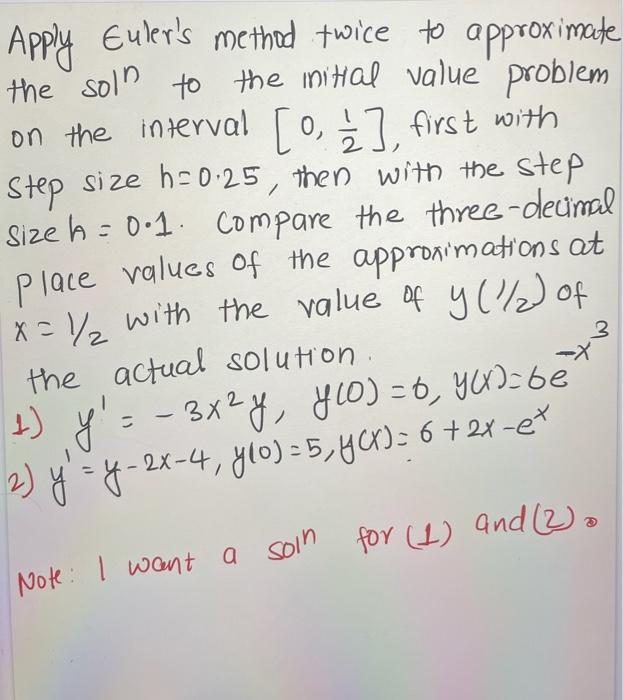 Apply Euler's method twice to approximate
the solⁿ to the initial value problem
on the interval [0, 1/2], first with
step size h=0.25, then with the step
size h = 0.1. Compare the three-decimal
place values of the approximations at
x = 1/2 with the value of y(1/2) of
the actual solution.
1) y' = -3x²y, y(0) = 6, y(x)=6e^-x³
2) y' = y-2x-4, y(0)=5, y(x)= 6+2x-eˣ
Note: I want a solⁿ for (1) and (2).